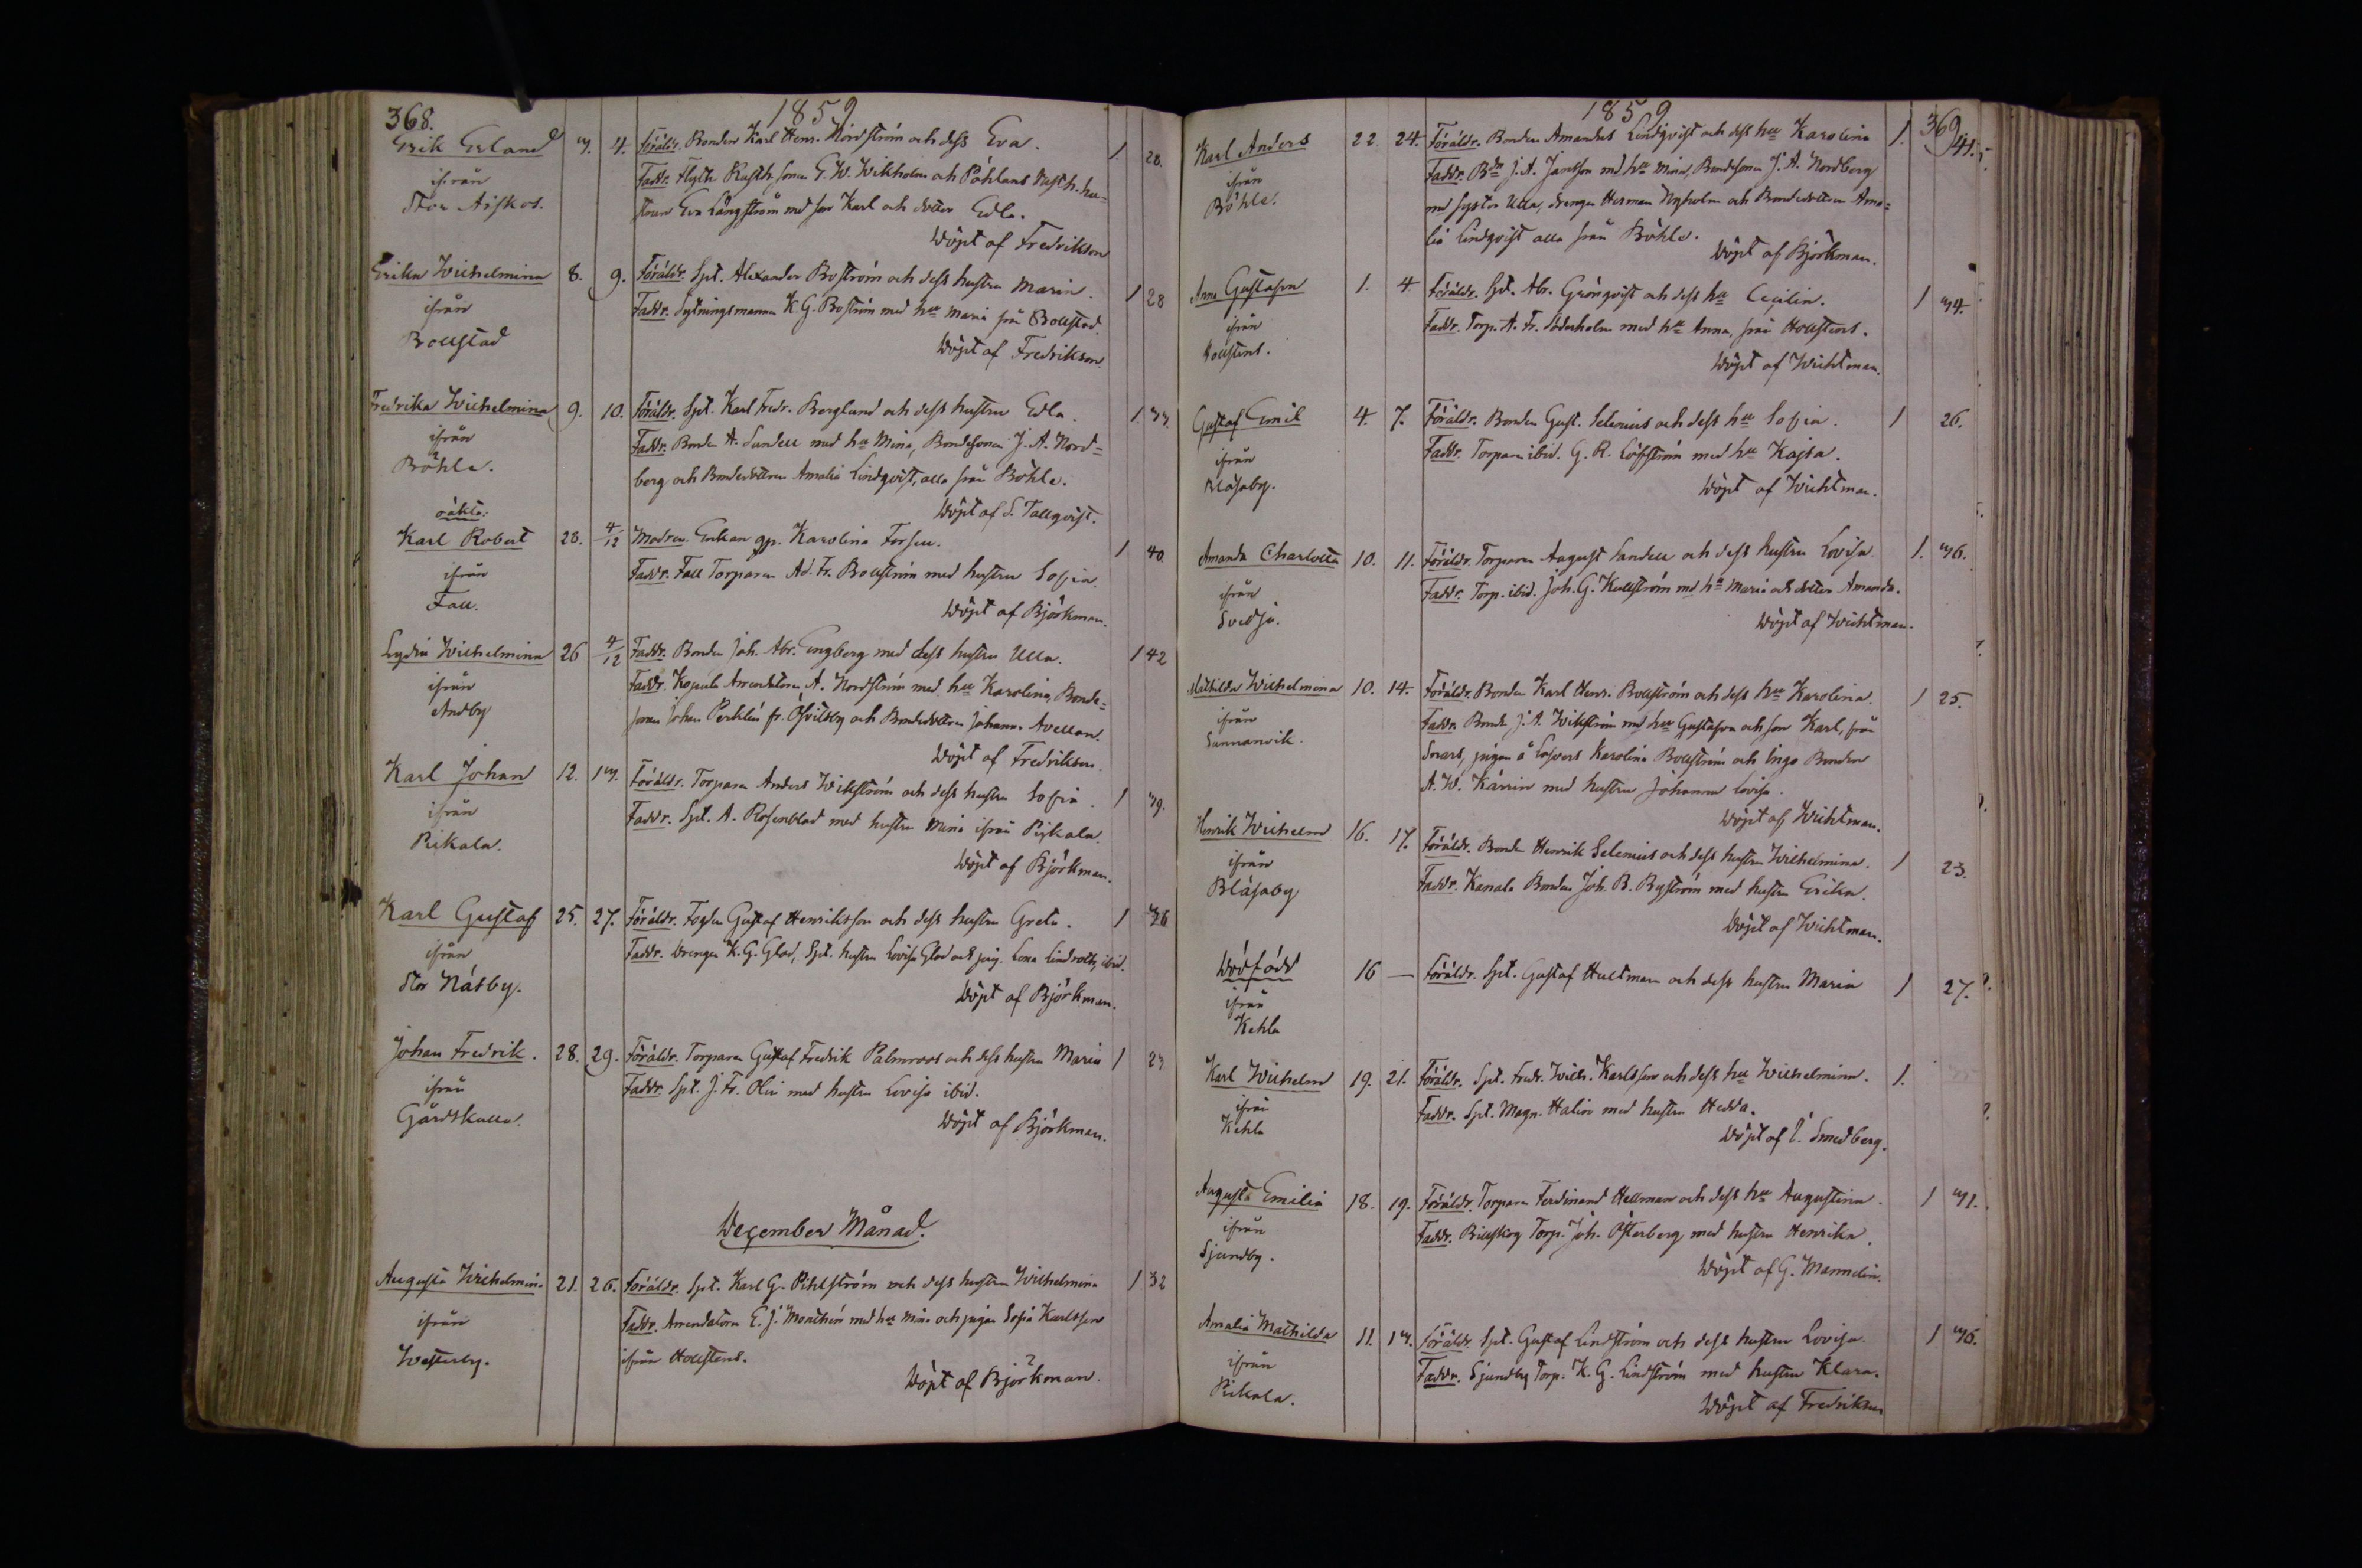 368.
1859
Erik Erland 3. 4. Föräldr. Bonden Karl Henr. Nordström och dess Eva. 1 28.
ifrån Faddr. Flyth Rusth. sonen G. W. Wikholm och Påhlans Rusth. hu-
Stor Aiskos. strun Eva Långström med son Karl och dotter Edla.
Döpt af Fredrikson
Erika Wilhelmina 8. 9. Föräldr. Spt. Alexander Boström och dess hustru Maria. 1 28
ifrån Faddr. Sytningsmannen K. G. Boström med hu Maria från Bollstad.
Bollstad Döpt af Fredrikson
Fredrika Wilhelmina 9. 10. Föräldr. Spt. Karl Fredr. Berglund och dess hustru Edla. 1. 33.
ifrån Faddr. Bonden A. Sundell med hu Mina, Bondesonen J. A. Nord=
Böhle. berg och Bondedottren Amalia Lindqvist, alla från Böhle.
Döpt af S. Tallqvist.
oäkta:
Karl Robert 28. 4/12 Modren Enkan Karolina Forsell. 1 40.
ifrån Faddr. Fall Torparen Ad. Fr. Bollström med hustru Sofia.
Fall. Döpt af Björkman.
Lydia Wilhelmina 26 4/12 Faddr. Bonden Joh. Abr. Engberg med dess hustru Ulla. 1 42
ifrån Faddr. Kopula Arrendatoren A. Nordström med hu Karolina, Bonde=
Andby sonen Johan Perklén fr. Öfvitsby och Bondedottren Johanna Avellan.
Döpt af Fredrikson.
Karl Johan 12. 13. Föräldr. Torparen Anders Wikström och dess hustru Sofia. 1 39.
ifrån Faddr. Spt. A. Rosenblad med hustru Mina ifrån Pikala.
Pikala. Döpt af Björkman.
Karl Gustaf 25. 27. Föräldr. Fogden Gustaf Henriksson och dess hustru Greta. 1 36
ifrån Faddr. Drengen K. G. Glad, Spt. hustrun Lovisa Glad och pig. Lona Lindroth, ibid.
Stor Näsby. Döpt af Björkman.
Johan Fredrik. 28. 29. Föräldr. Torparen Gustaf Fredrik Palmroos och dess hustru Maria 1 23
ifrån Faddr. Spt. J. Fr. Olin med hustru Lovisa ibid.
Gårdskulla. Döpt af Björkman.
December Månad.
Augusta Wilhelmina 21. 26. Föräldr. Spt. Karl G. Pihlström och dess hustru Wilhelmina 1 32
ifrån Faddr. Arrendatorn E. J. Monthén med hu Mina och pigan Sofia Karlsson
Westerby. ifrån Hollstens.
Döpt af Björkman.
1859
369
Karl Anders 22. 24. Föräldr. Bonden Amandus Lindqvist och dess hu Karolina 1. 41.
ifrån Faddr. Bdn J. A. Jansson med hu Mina, Bondesonen J. A. Nordberg
Böhle. med syster Ulla, drengen Herman Nyholm och Bondedottren Ama=
lia Lindqvist alla från Böhle.
Döpt af Björkman.
Anna Gustafva 1. 4. Föräldr. Spt. Abr. Grönqvist och dess hu Cecilia. 1 34.
ifrån Faddr. Torp. A. Fr. Söderholm med hu Anna, från Hollstens.
Hollstens. Döpt af Wichtman.
Gustaf Emil 4. 7. Föräldr. Bonden Gust. Selenius och dess hu Sofia. 1 26.
ifrån Faddr. Torparen ibid. G. R. Löfström med hu Kajsa.
Blåsaby. Döpt af Wichtman.
Amanda Charlotta 10. 11. Föräldr. Torparen August Sandell och dess hustru Lovisa. 1. 36.
ifrån Faddr. Torp. ibid. Joh. G. Kullström med hu Maria och dotter Amanda.
Svedja. Döpt af Wichtman.
Mathilda Wilhelmina 10. 14. Föräldr. Bonden Karl Henr. Bollström och dess hu Karolina. 1 25.
ifrån Faddr. Bond. J. A. Wikström med hu Gustafva och son Karl, från
Sunnanvik. Svarts, pigan å Lofvers Karolina Bollström och Inga Bonden
A. W. Kärrin med hustru Johanna Lovisa.
Döpt af Wichtman.
Henrik Wilhelm 16. 17. Föräldr. Bonden Henrik Selenius och dess hustru Wilhelmina. 1 23.
ifrån Faddr. Kanala Bonden Joh. B. Byström med hustru Erika.
Blåsaby Döpt af Wichtman.
Dödfödd 16 — Föräldr. Spt. Gustaf Hultman och dess hustru Maria 1 27.
ifrån
Kehla
Karl Wilhelm 19. 21. Föräldr. Spt. Fredr. Wilh. Karlsson och dess hu Wilhelmina. 1.
ifrån Faddr. Spt. Magn. Halin med hustru Hedda.
Kehla Döpt af Smedberg.
Augusta Emilia 18. 19. Föräldr. Torparen Ferdinand Hellman och dess hu Augustina. 1 31.
ifrån Faddr. Billskog Torp. Joh. Österberg med hustru Henrika.
Sjundby. Döpt af G. Mannelin.
Amalia Mathilda 11. 13. Föräldr. Spt. Gustaf Lindström och dess hustru Lovisa. 1 36.
ifrån Faddr. Sjundby Torp. K. G. Lindström med hustru Klara.
Pikala. Döpt af Fredrikson